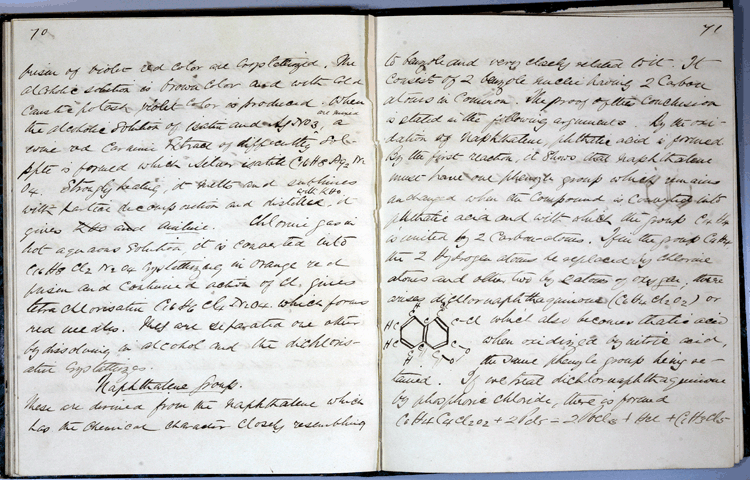 70
prism of violet red color are crystallized. The
alcoholic solution is brown color and with cold
caustic potash violet color is produced. When
are mixed
the alcoholic solution of isatin and AgNO3, a
wine red carmine of difficultly
ppte is formed which silver isatite C16H8 Ag2 N2
O4. Strongly heating, it melts and sublimes
with KHO
with partial decomposition and distilled it
gives and aniline. Chlorine gas in
hot aqueous solution it is converted into
C16H8 Cl2 N2O4 crystallizing in orange red
prism and continued action of Cl. gives
tetrachlorisatin C16H6 Cl4 N2O4 which forms
red needles. They are separated one other
by dissolving in alcohol and the dichloris-
atin crystallizes.
Naphthalene Group.
These are derived from the naphthalene which
has the chemical character closely resembling
71
to benzole and very closely related to it. It
consist of 2 benzole nuclei having 2 Carbon
atoms in common. The proof of the conclusion
is stated in the following arguments. By the oxi-
dation of naphthalene, phthalic acid is formed
by the first reaction, it shows that naphthalene
must have one phenyle group which remains
unchanged when the compound is converted into
phthalic acid and with which the group C4H4
is united by 2 Carbon-atoms. If in the group C4H4
the 2 Hydrogen atoms be replaced by chlorine
atoms and other two by 2 atoms of oxygen, there
arises dichlornaphthaquinone (C10H4Cl2O2) or
which also becomes phthalic acid
when oxidized by nitric acid,
the same phenyle group being re-
tained. If we treat dichlornaphthaquinone
by phosphoric chloride, there is formed
C6H4C4Cl2O2 + 2PCl5 = 2POCl3 + HCl +